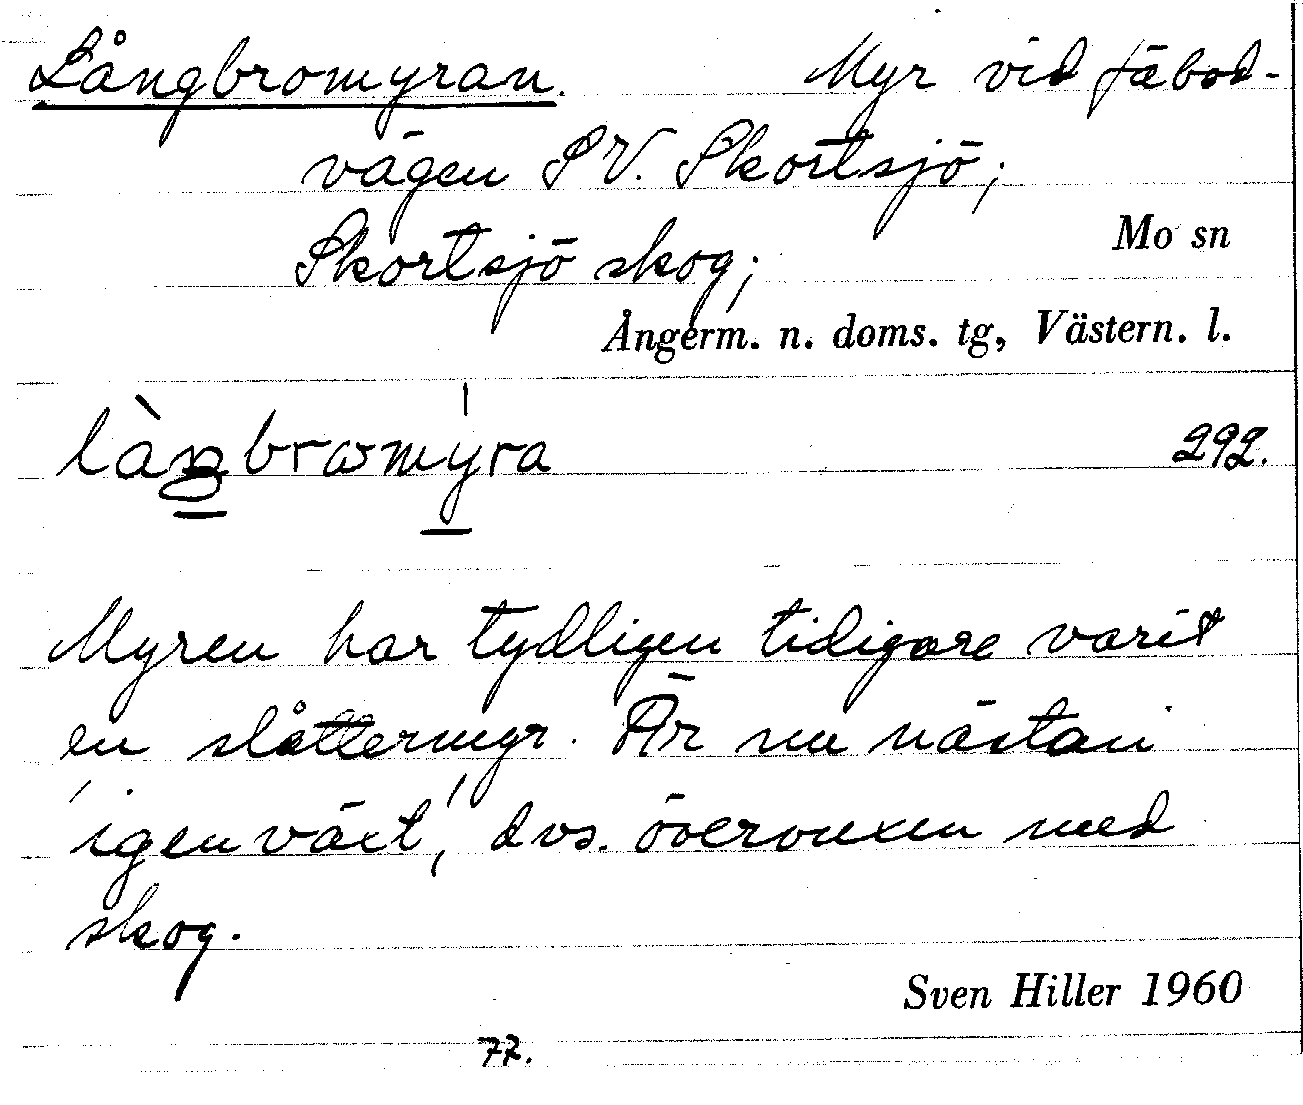 Långbromyran. Myr vid fäbod-
vägen SV. Skortsjö;
Skortsjö skog;
Mo sn
Ångerm. n. doms. tg, Västern. l.
làŋbrωmýra 292.
Myren har tydligen tidigare varit
en slåttermyr. Är nu nästan
'igenväxt', dvs. övervuxen med
skog.
Sven Hiller 1960
77.